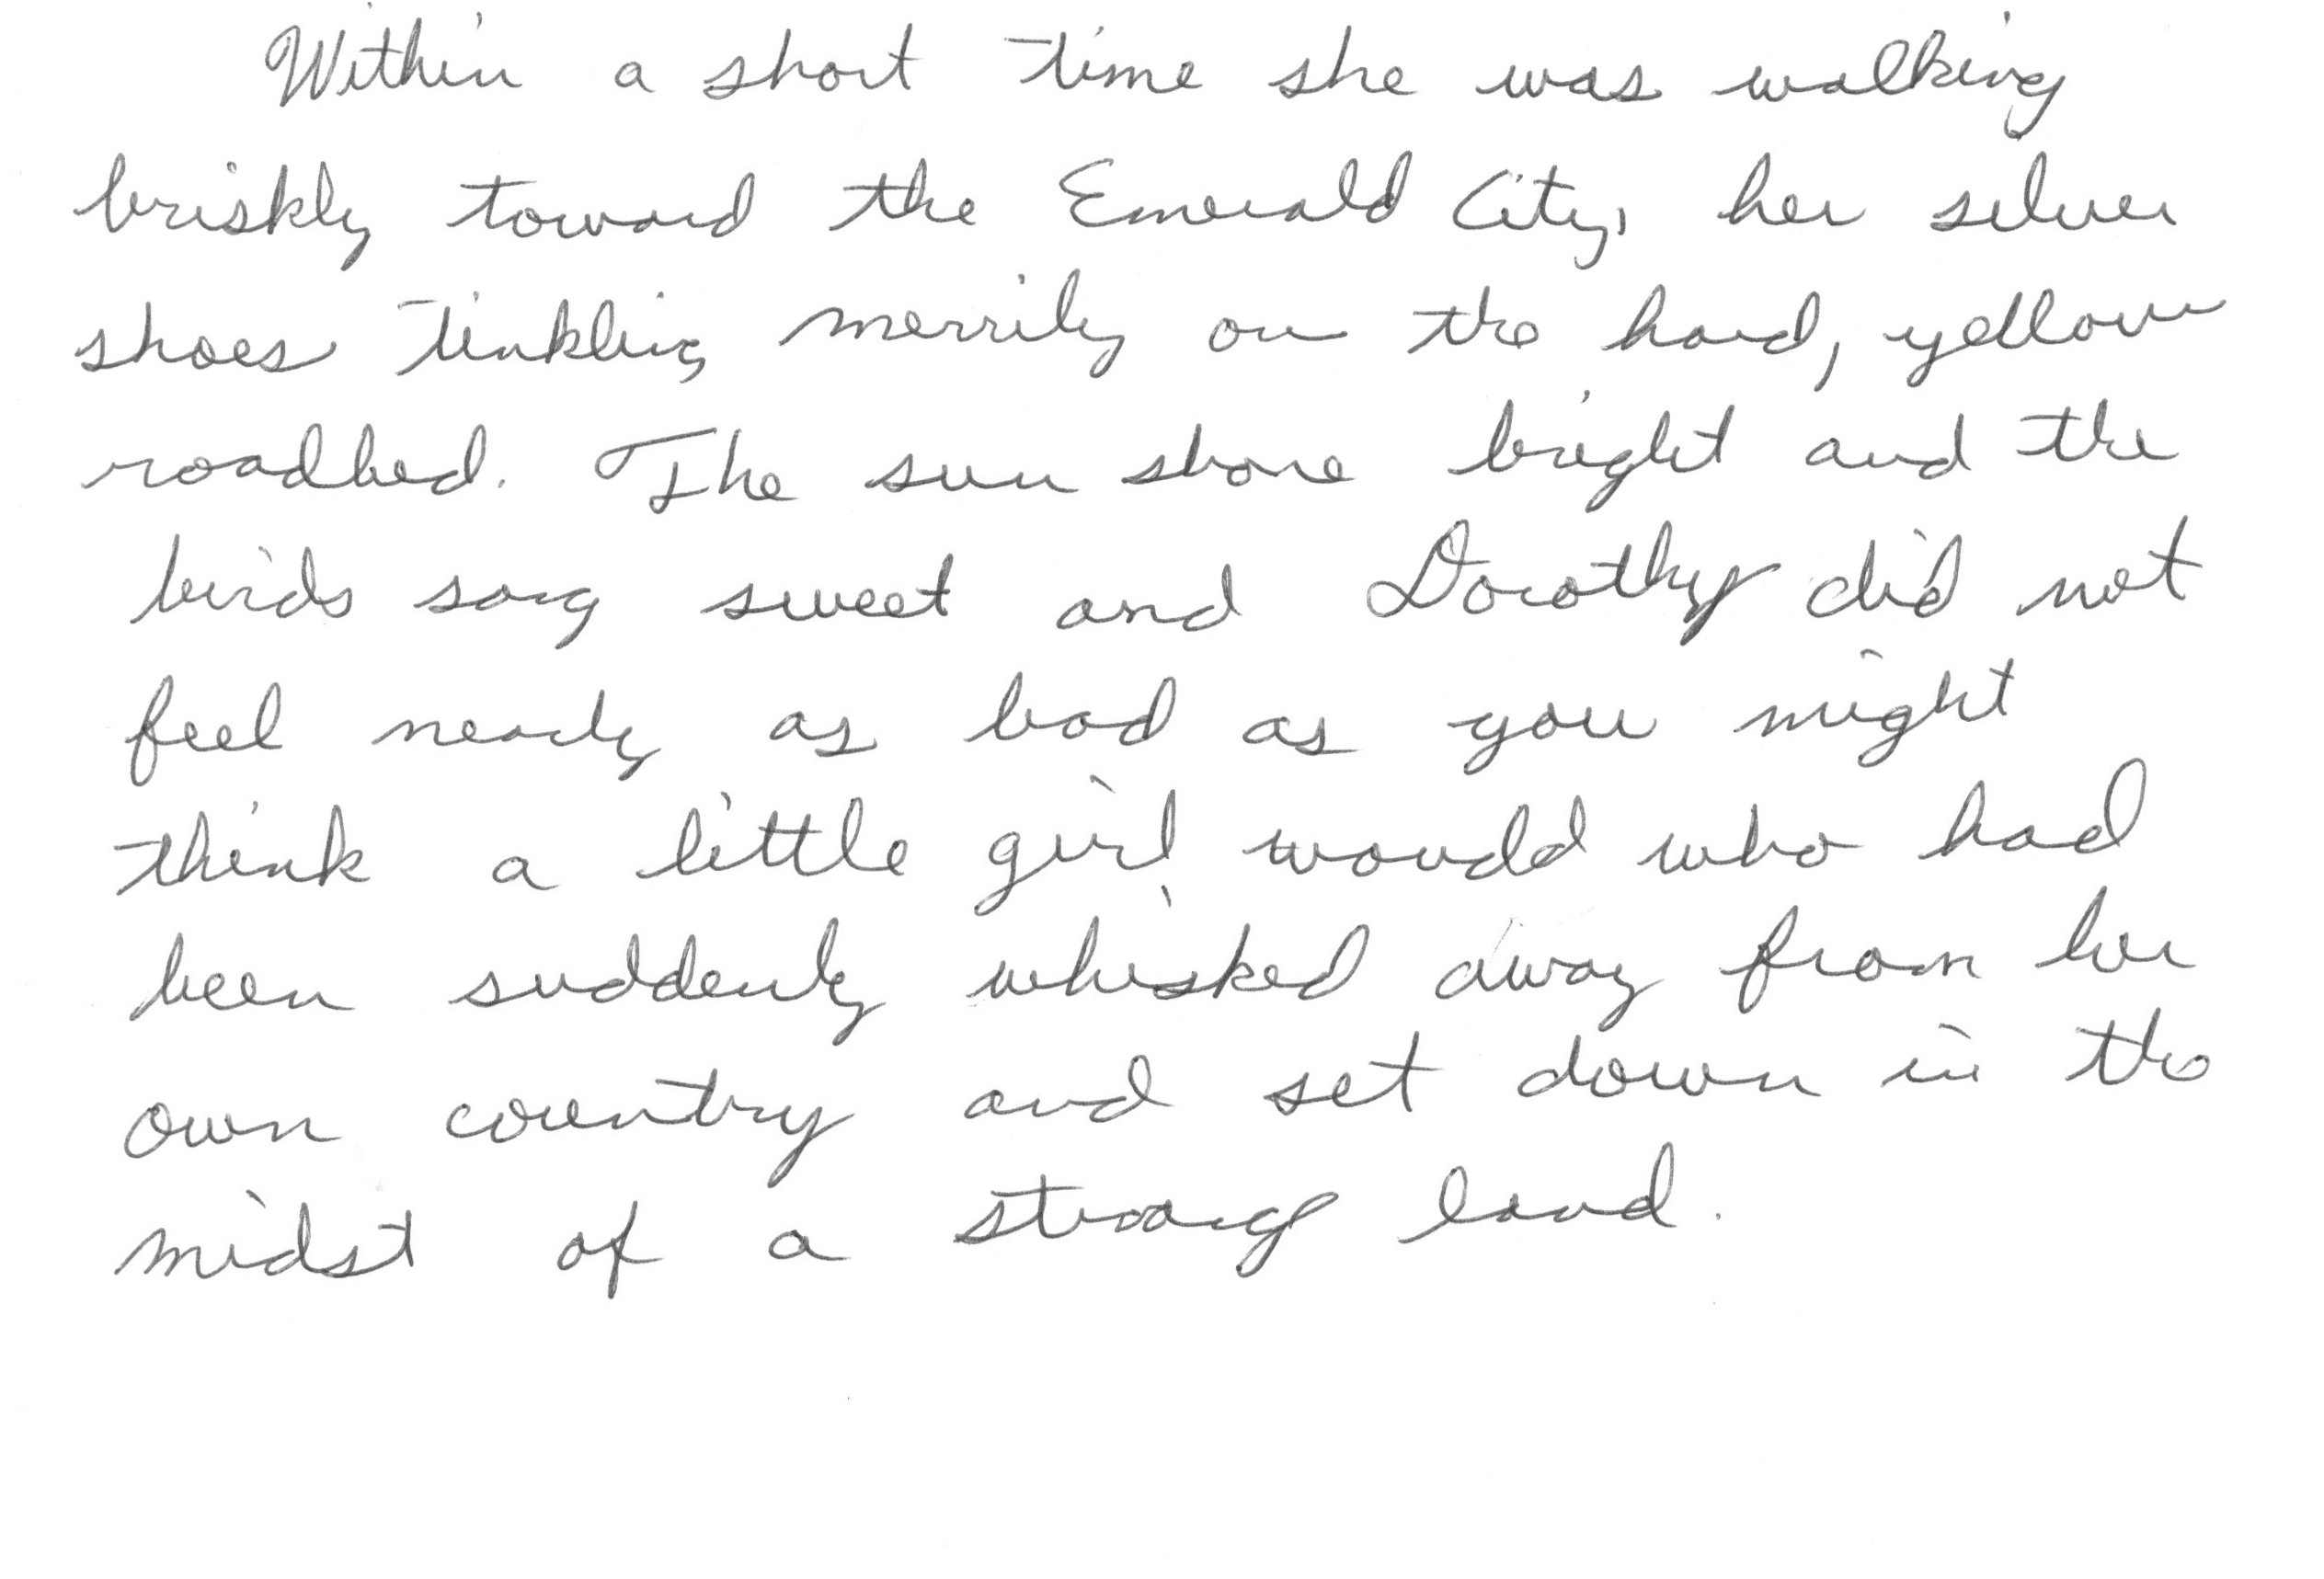 Within a short time she was walking
briskly toward the Emerald City, her silver
shoes tinkling merrily on the hard, yellow
roadbed. The sun shone bright and the
birds sang sweet and Dorothy did not
feel nearly as bad as you might
think a little girl would who had
been suddenly whisked away from her
own country and set down in the
midst of a strange land.